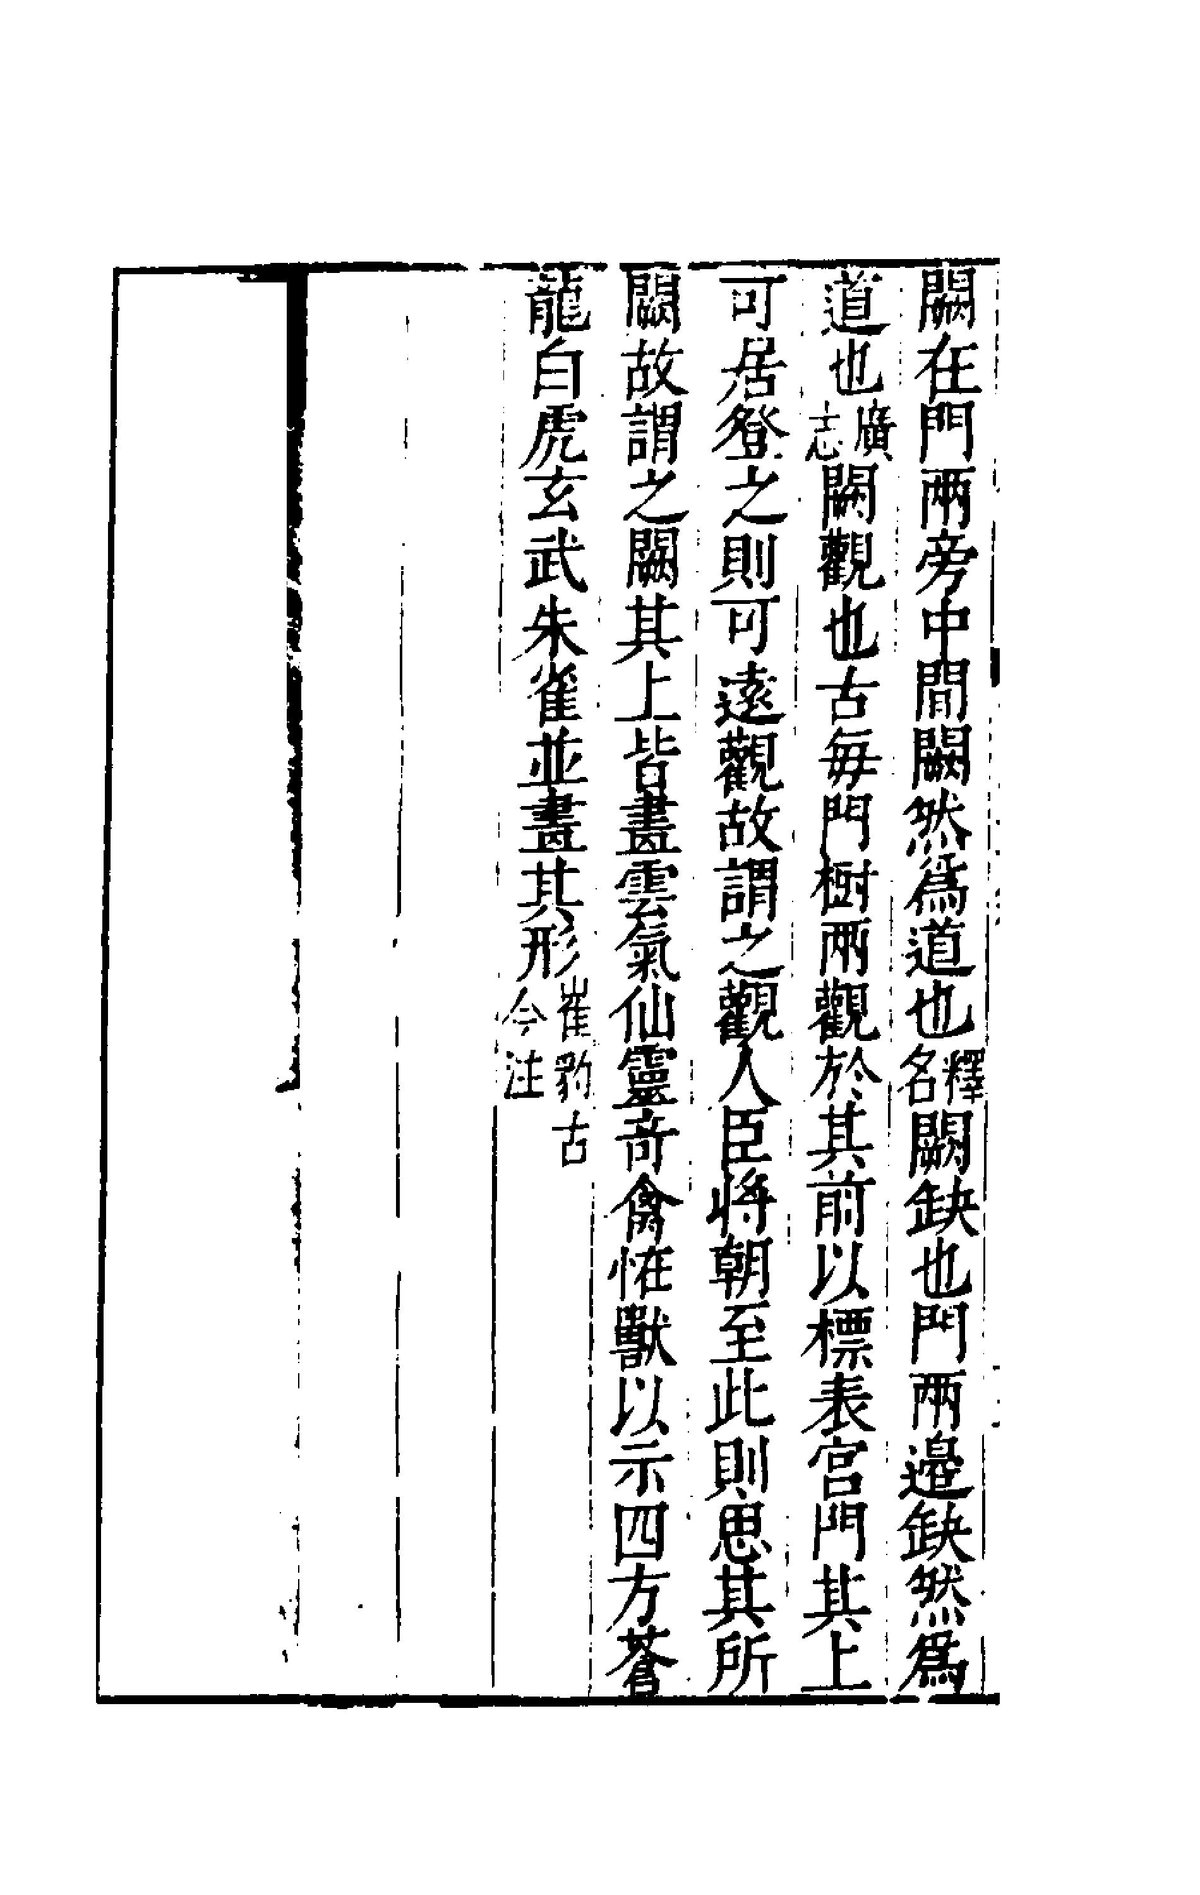 闕在門兩旁中間闕然爲道也釋名闕缺也門兩邉缺然爲
道也廣志闕觀也古每門樹兩觀於其前以標表宮門其上
可居登之則可遠觀故謂之觀人臣將朝至此則思其所
闕故謂之闕其上皆畫雲氣仙靈奇禽恠獸以示四方蒼
龍白虎玄武朱雀並畫其形崔豹古今注